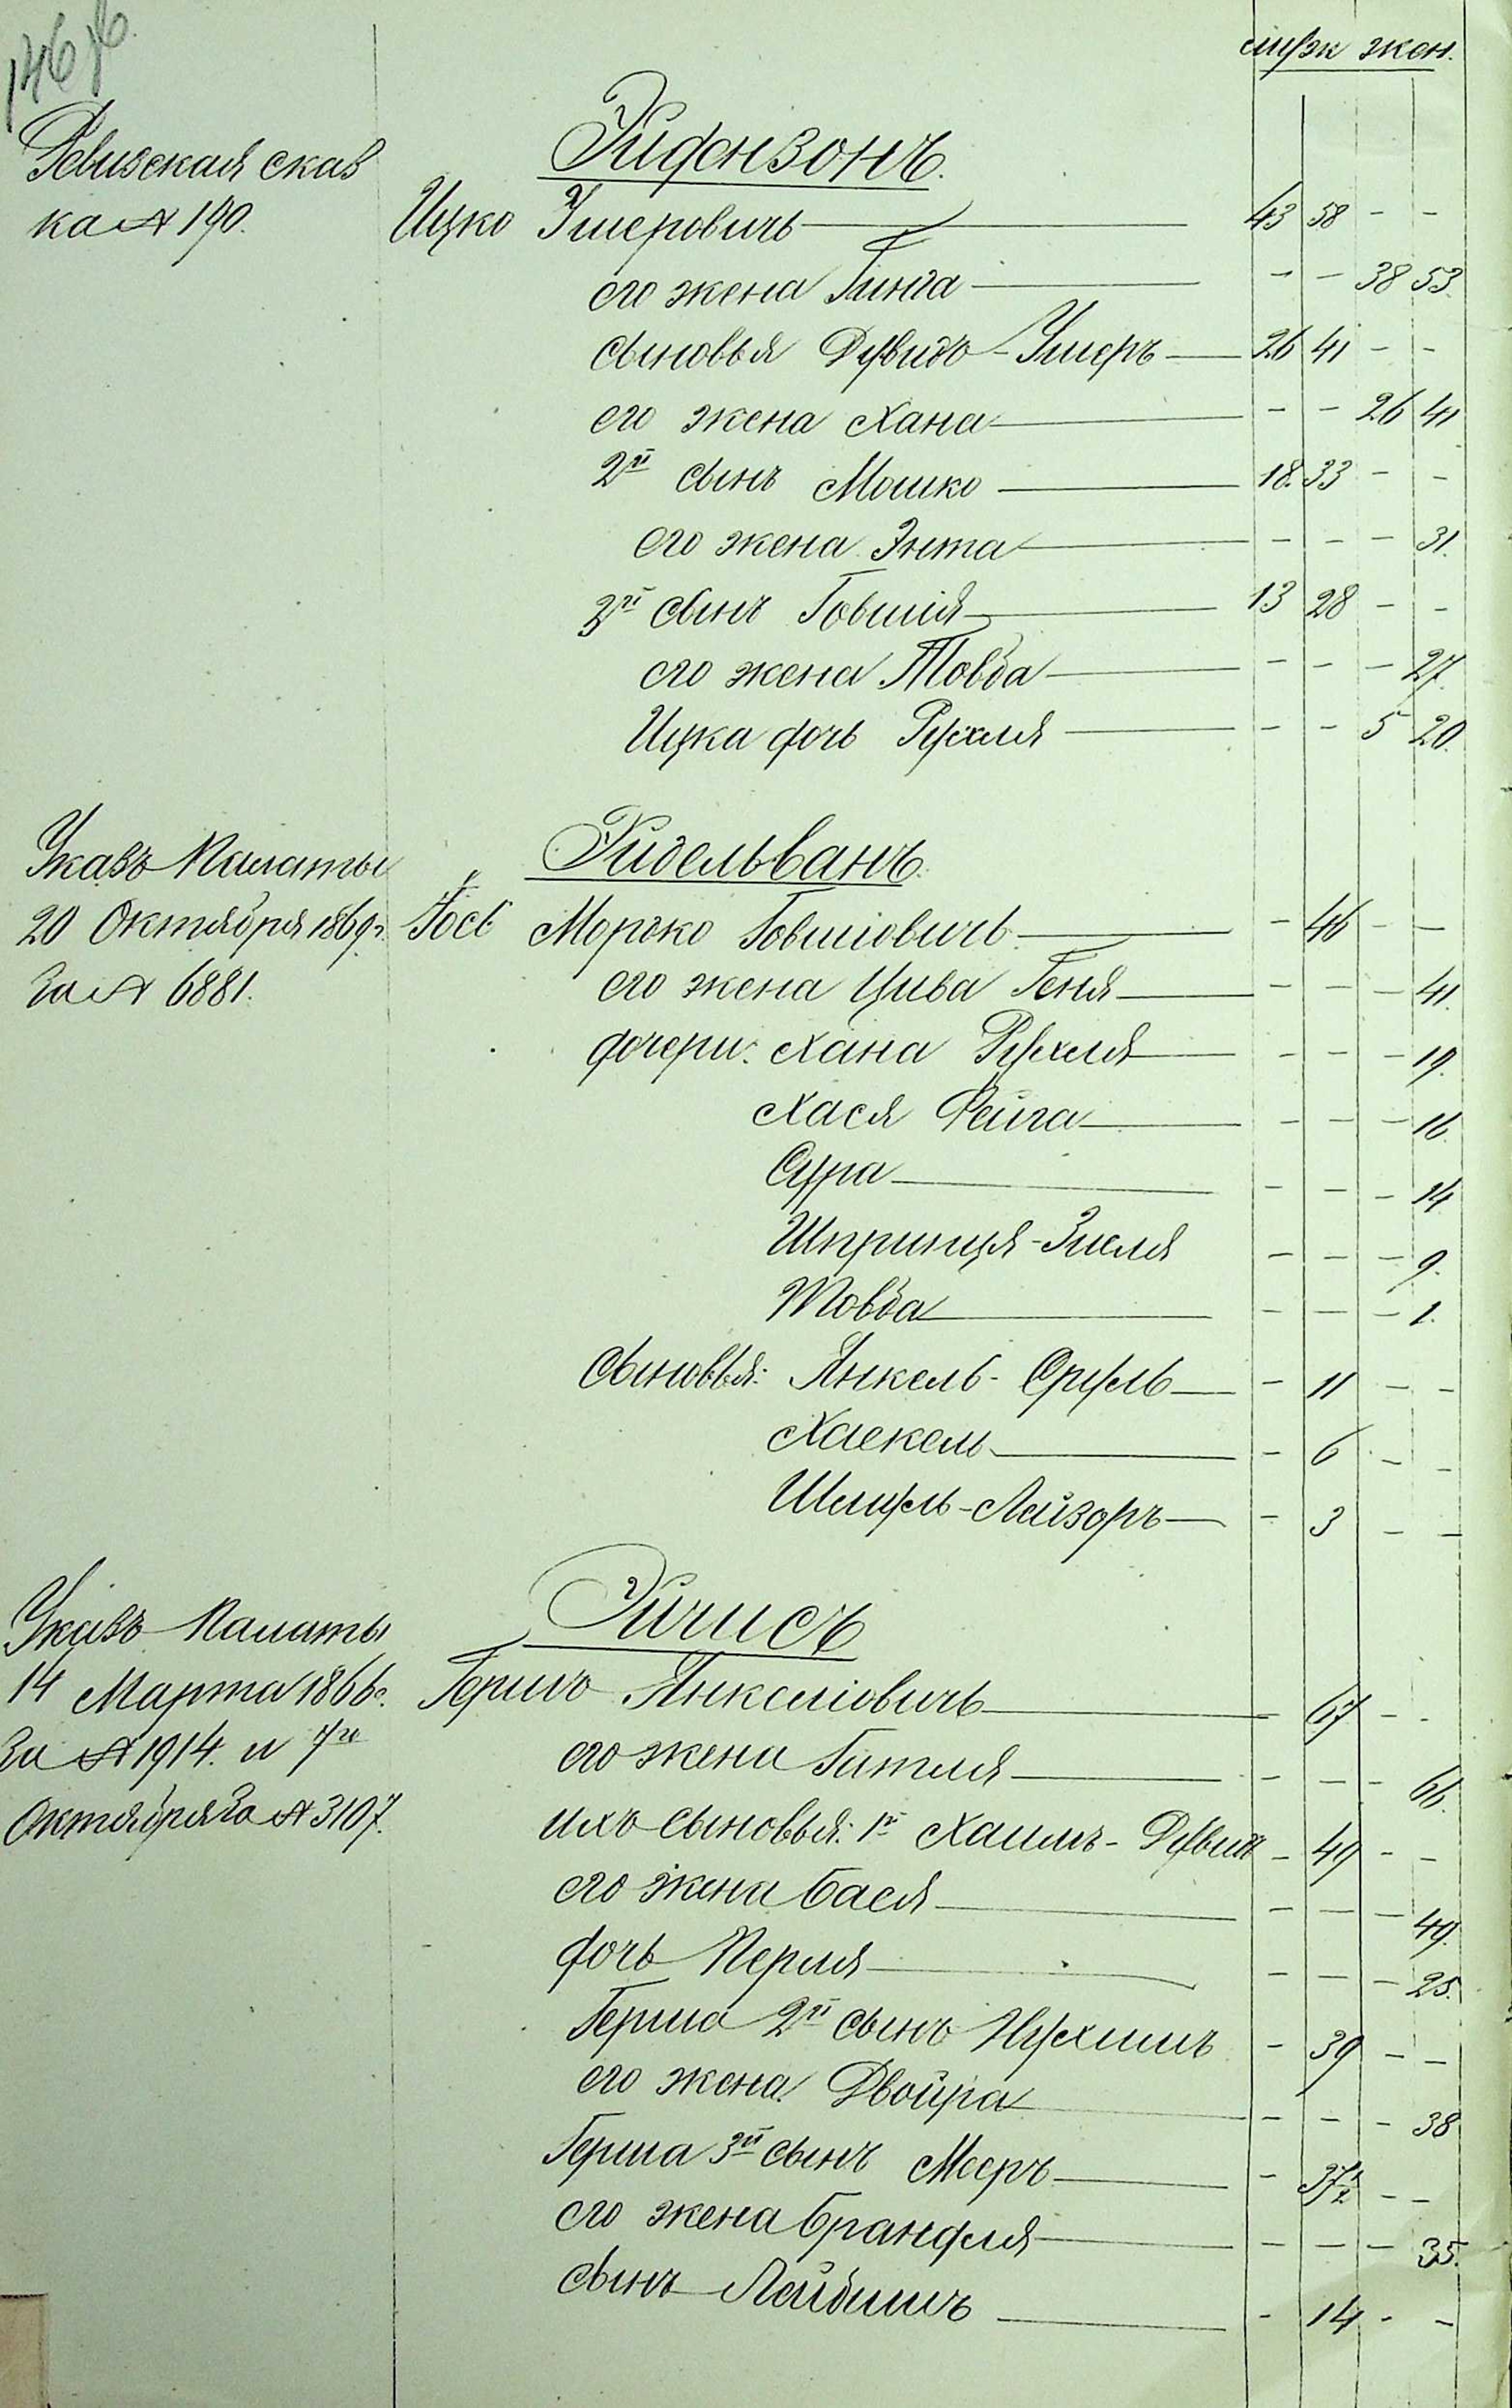 муж жен.
Эйдензонъ.
Ревизская сказ
ка № 190.
Ицко Умеровичъ 43 58 - -
его жена Гинда - - 38 53.
сыновья Дувидъ-Умеръ 26 41 - -
его жена Хана - - 26 41
2й сынъ Мошко 18. 33 - -
его жена Энта - - - 31.
3й сынъ Говшія 13 28 - -
его жена Товба - - - 27.
Ицка дочь Рухля - - 5 20.
Указъ Палаты
20 Октября 1869г.
За № 6881.
Эйдельванъ.
Іосъ Мордко Говшіовичъ - 46 - -
его жена Цива Геня - - - 41.
дочери: Хана Рухля - - - 19.
Хася Фейга - - - 16.
Сура - - - 14
Шпринця-Зисля - - - 9.
Товба - - - 1.
сыновья: Янкель-Сруль - 11 - -
Хаскель - 6 - -
Шмуль-Лейзоръ - 3 - -
Указъ Палаты
14 Марта 1866г.
За № 1914. и 7го
Октября За № 3107.
Эйчисъ
Гершъ Янкеліовичъ - 67 - -
его жена Гитля - - - 66.
ихъ сыновья: 1й Хаимъ-Дувидъ - 49 - -
его жена Бася - - - 49.
дочь Перля - - - 25.
Герша 2й сынъ Нухимъ - 39 - -
его жена Двойра - - - 38
Герша 3й сынъ Мееръ - 37½ - -
его жена Брандля - - - 35.
сынъ Лейбишъ - 14 - -